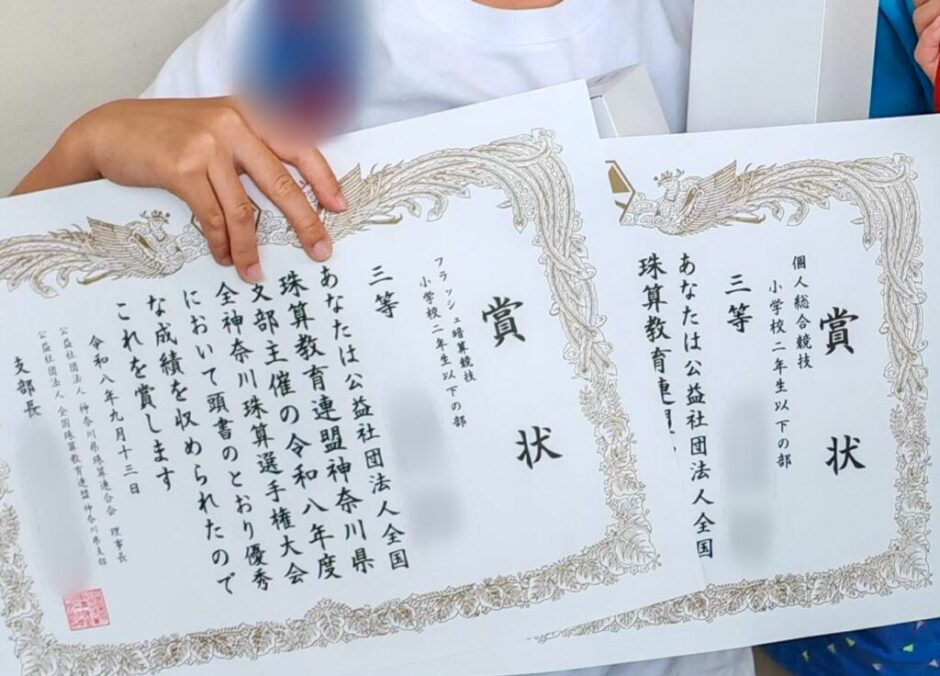 賞状
フラッシュ暗算競技
小学校二年生以下の部
三等
あなたは公益社団法人全国
珠算教育連盟神奈川県
支部主催の令和八年度
全神奈川珠算選手権大会
において頭書のとおり優秀
な成績を収められたので
これを賞します
令和八年九月十三日
公益社団法人 神奈川県珠算連合会 理事長
公益社団法人 全国珠算教育連盟 神奈川県支部
支部長
賞状
個人総合競技
小学校二年生以下の部
三等
あなたは公益社団法人全国
珠算教育連盟